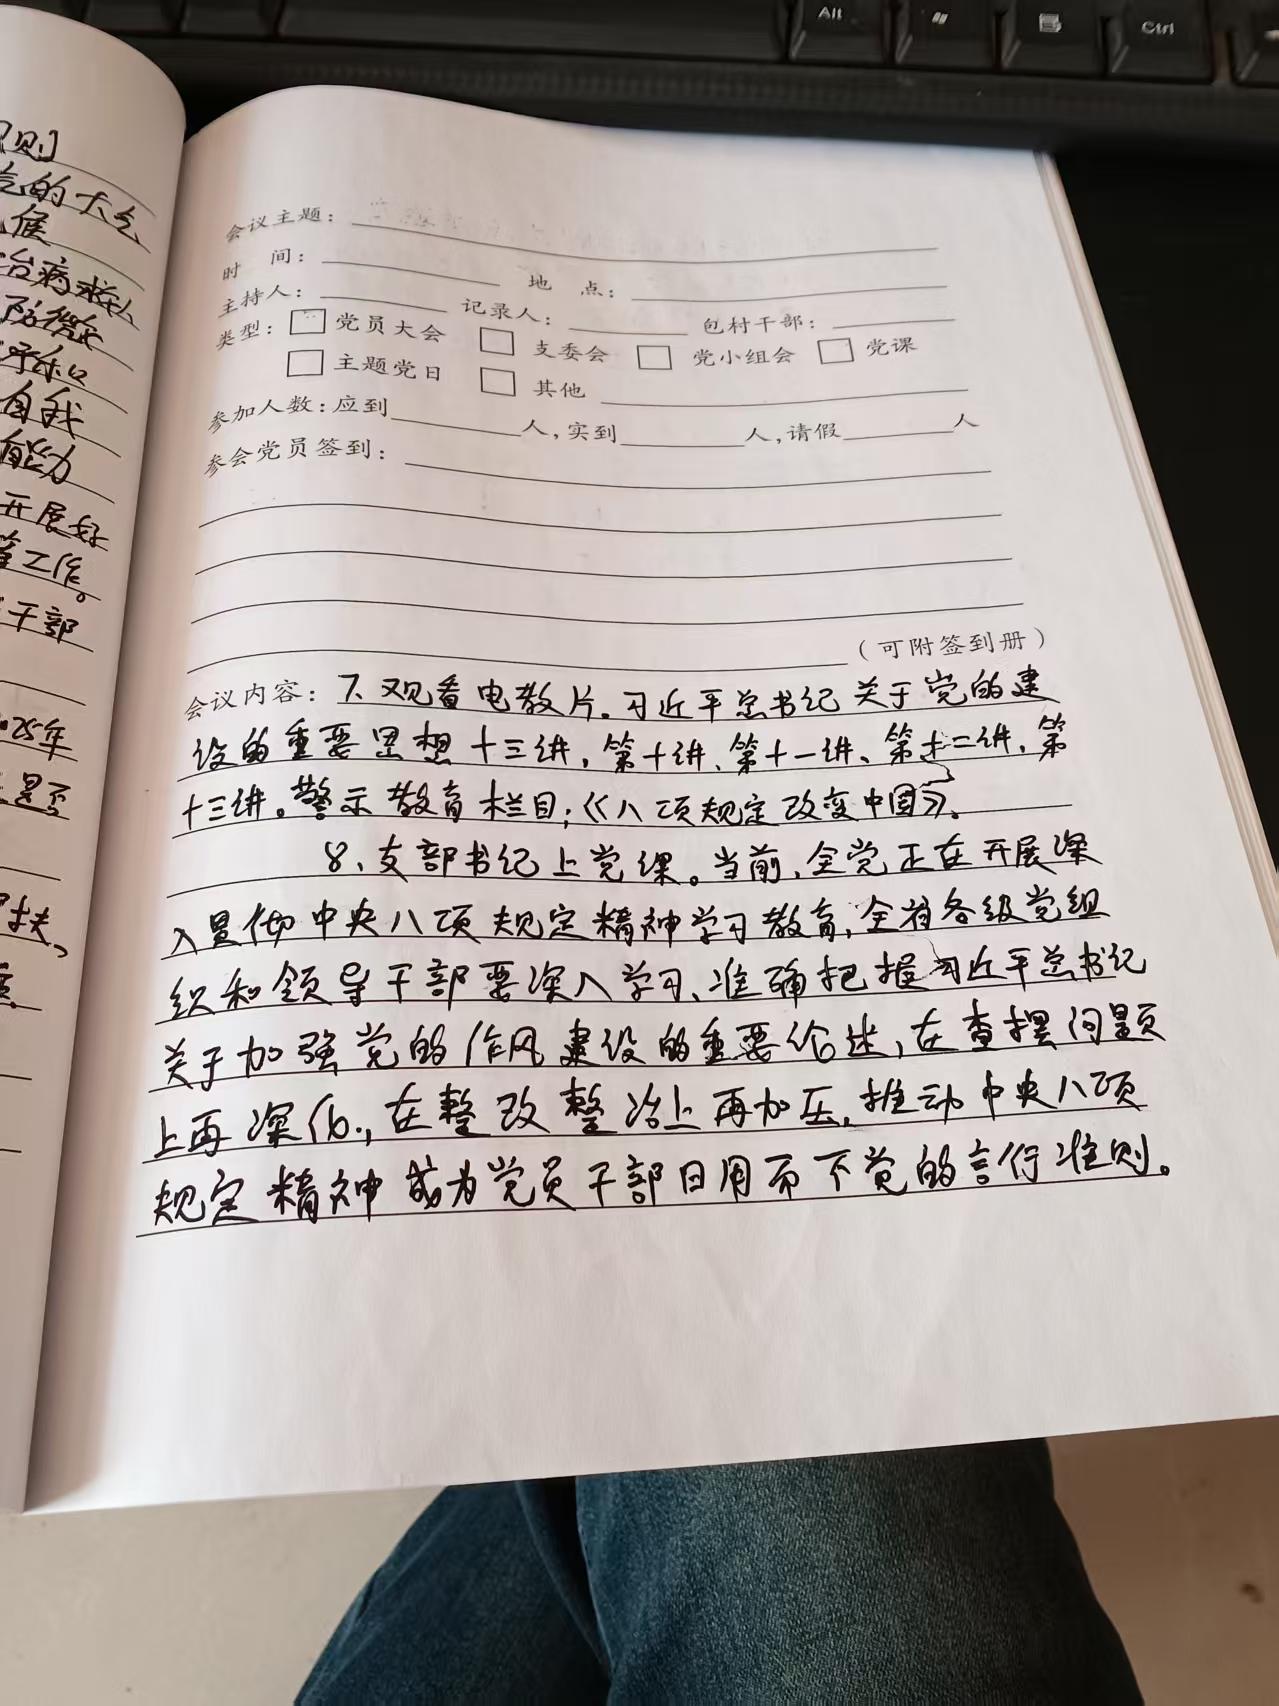 则
的大气
候
治病救人
防微
自我
能力
开展好
工作。
干部
025年
是否
扶,
会议主题:
时 间: 地 点:
主持人: 记录人: 包村干部:
类型: □ 党员大会 □ 支委会 □ 党小组会 □ 党课
□ 主题党日 □ 其他
参加人数:应到 人,实到 人,请假 人
参会党员签到:
(可附签到册)
会议内容: 7、观看电教片。习近平总书记关于党的建
设的重要思想十三讲,第十讲、第十一讲、第十二讲、第
十三讲。警示教育栏目;《八项规定改变中国》。
8、支部书记上党课。当前,全党正在开展深
入贯彻中央八项规定精神学习教育,全省各级党组
织和领导干部要深入学习、准确把握习近平总书记
关于加强党的作风建设的重要论述,在查摆问题
上再深化,在整改整治上再加压,推动中央八项
规定精神成为党员干部日用而不觉的言行准则。